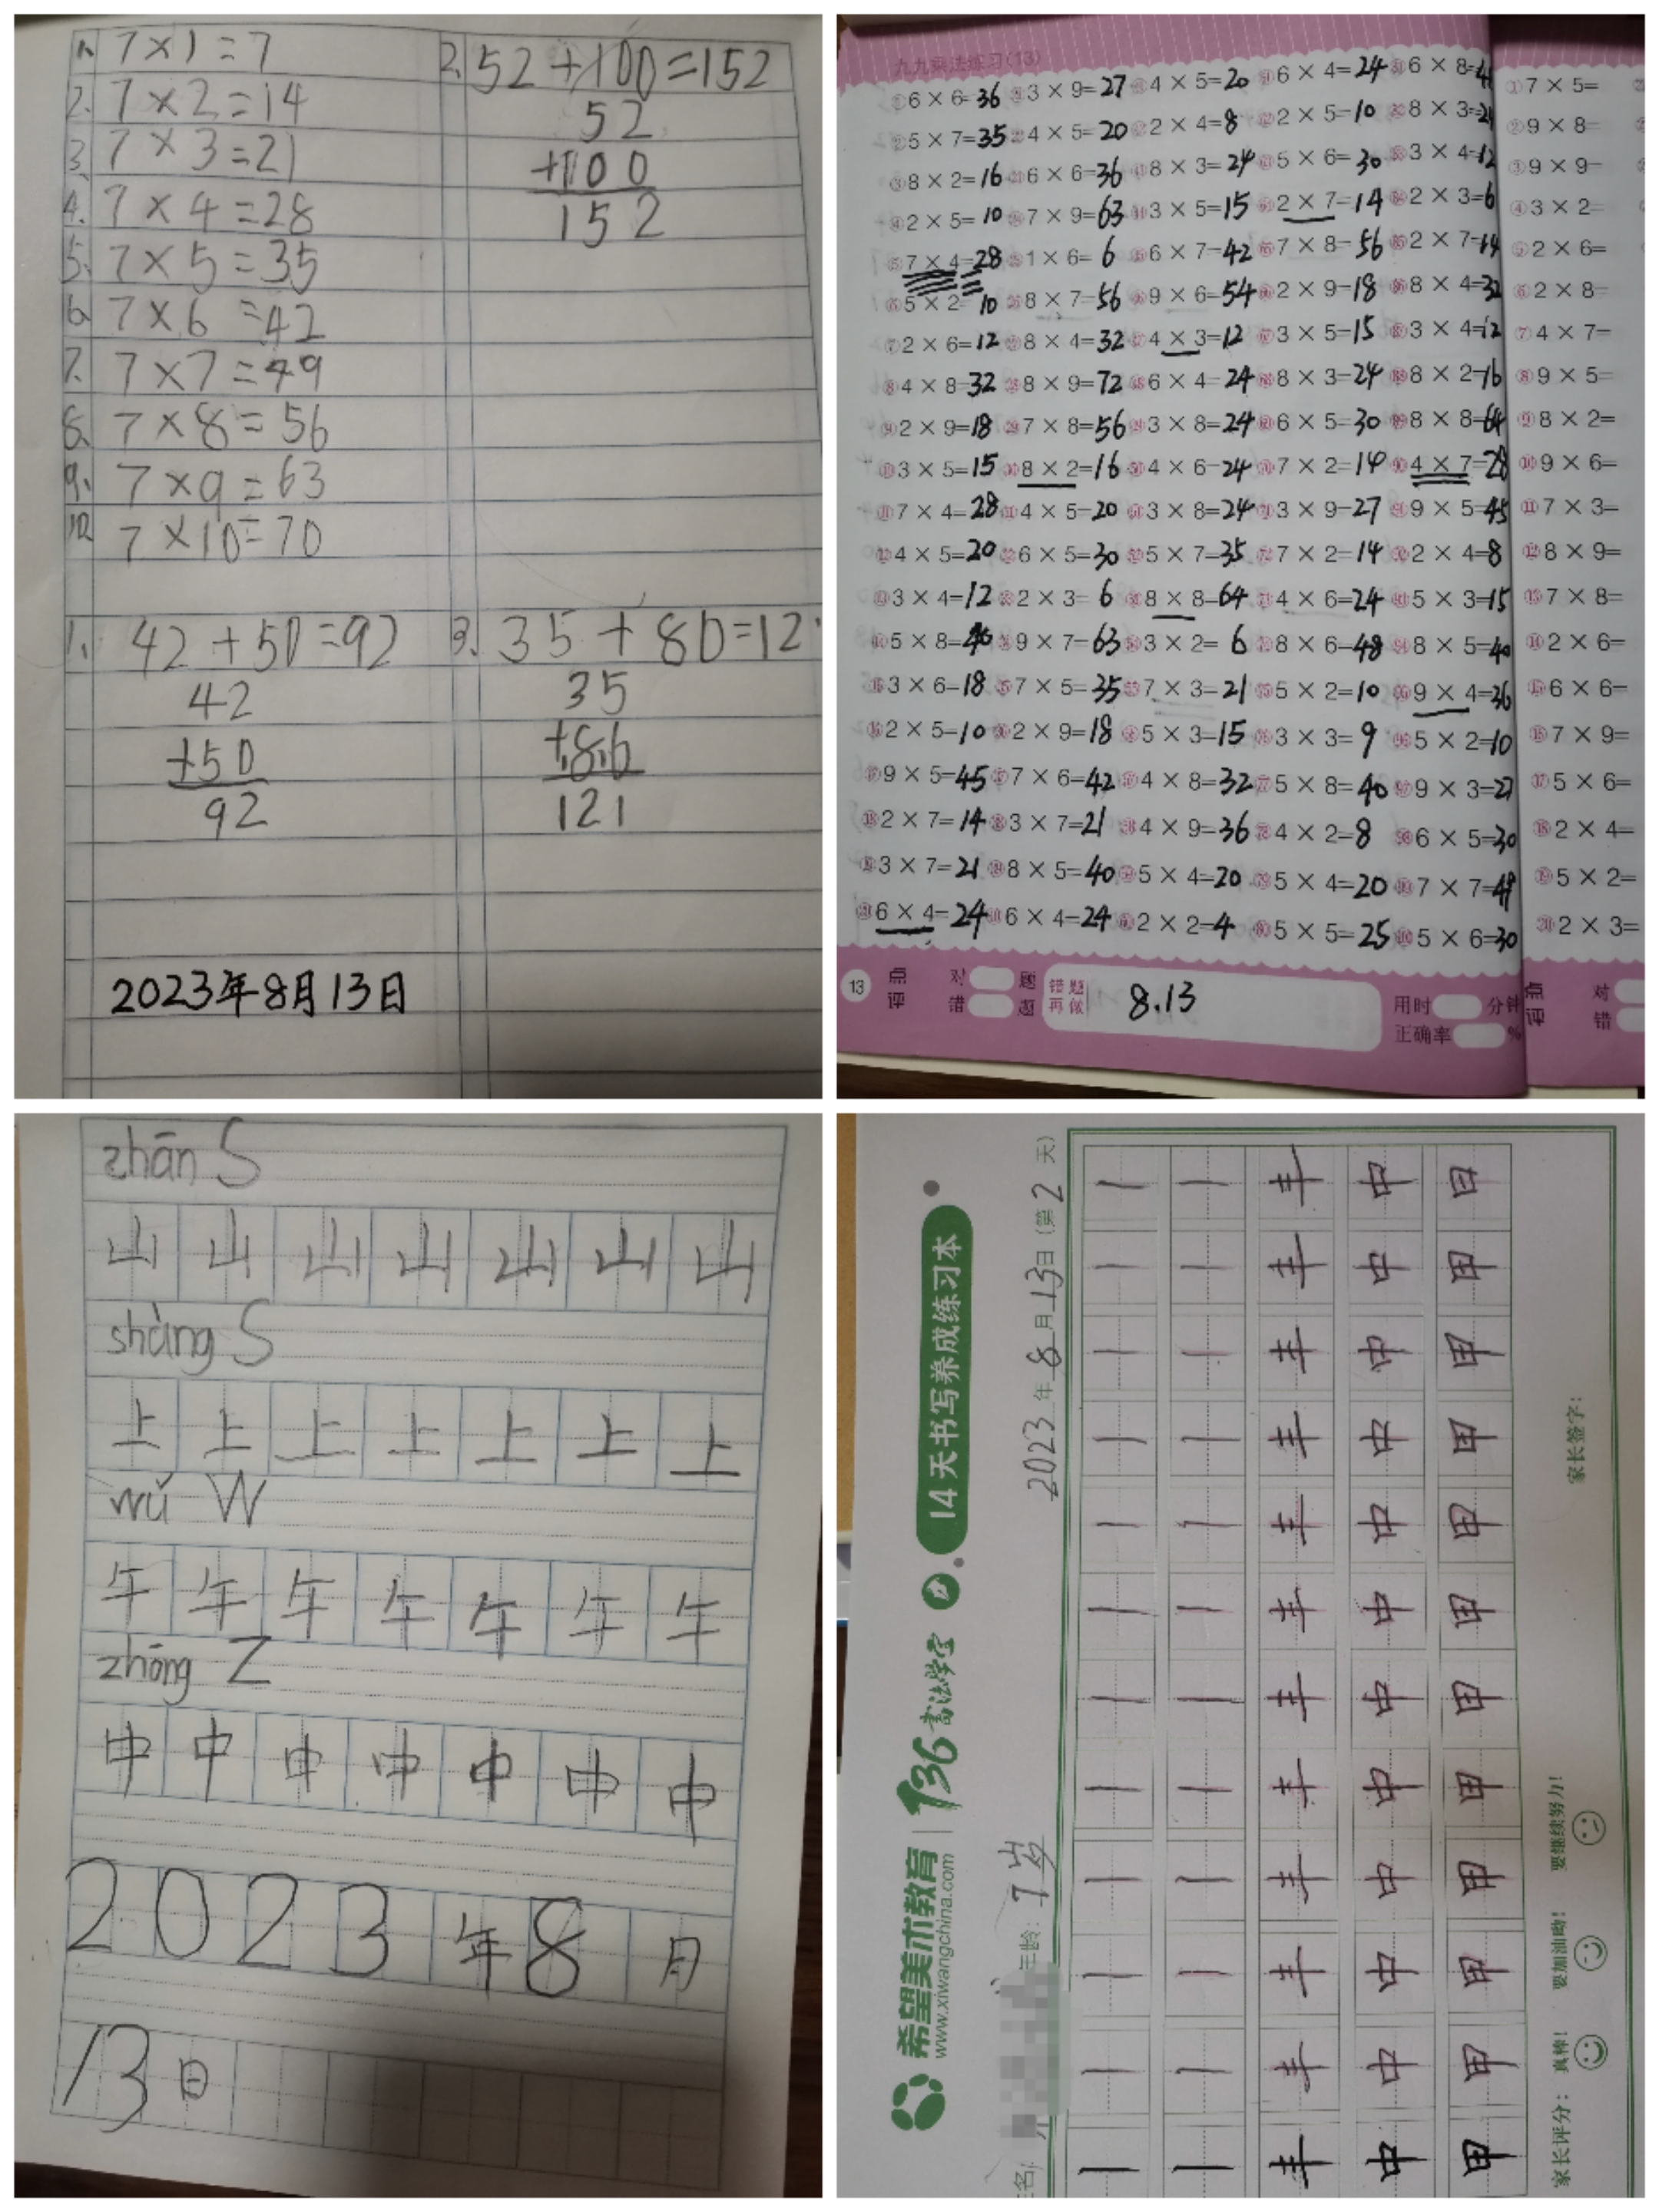 1. 7×1=7
2. 7×2=14
3. 7×3=21
4. 7×4=28
5. 7×5=35
6. 7×6=42
7. 7×7=49
8. 7×8=56
9. 7×9=63
10. 7×10=70
2. 52+100=152
52
+100
152
1. 42+50=92
42
+50
92
3. 35+80=12
35
+86
121
2023年8月13日
九九乘法练习(13)
6×6=36 3×9=27 4×5=20 6×4=24 6×8=4
5×7=35 4×5=20 2×4=8 2×5=10 8×3=24
8×2=16 6×6=36 8×3=24 5×6=30 3×4=12
2×5=10 7×9=63 3×5=15 2×7=14 2×3=6
7×4=28 1×6=6 6×7=42 7×8=56 2×7=14
5×2=10 8×7=56 9×6=54 2×9=18 8×4=32
2×6=12 8×4=32 4×3=12 3×5=15 3×4=12
4×8=32 8×9=72 6×4=24 8×3=24 8×2=16
2×9=18 7×8=56 3×8=24 6×5=30 8×8=64
3×5=15 8×2=16 4×6=24 7×2=14 4×7=28
7×4=28 4×5=20 3×8=24 3×9=27 9×5=45
4×5=20 6×5=30 5×7=35 7×2=14 2×4=8
3×4=12 2×3=6 8×8=64 4×6=24 5×3=15
5×8=40 9×7=63 3×2=6 8×6=48 8×5=40
3×6=18 7×5=35 7×3=21 5×2=10 9×4=36
2×5=10 2×9=18 5×3=15 3×3=9 5×2=10
9×5=45 7×6=42 4×8=32 5×8=40 9×3=27
2×7=14 3×7=21 4×9=36 4×2=8 6×5=30
3×7=21 8×5=40 5×4=20 5×4=20 7×7=49
6×4=24 6×4=24 2×2=4 5×5=25 5×6=30
①7×5=
②9×8=
③9×9=
④3×2=
⑤2×6=
⑥2×8=
⑦4×7=
⑧9×5=
⑨8×2=
⑩9×6=
⑪7×3=
⑫8×9=
⑬7×8=
⑭2×6=
⑮6×6=
⑯7×9=
⑰5×6=
⑱2×4=
⑲5×2=
⑳2×3=
13 点评 对 题 错 题 错题再做 8.13 用时 分钟 正确率 %
点评 对 错
zhān S
山山山山山山山
shàng S
上上上上上上上
wǔ W
午午午午午午午
zhōng Z
中中中中中中中
2023年8月
13日
希望美术教育 136书法学堂 14天书写养成练习本
www.xiwangchina.com
名: 年龄: 7岁 2023年8月13日(第2天)
一一一一一一一一一一一一
一一一一一一一一一一一一
丰丰丰丰丰丰丰丰丰丰丰丰
中中中中中中中中中中中中
由由由由由由由由由由由由
家长评分: 真棒! 要加油呦! 要继续努力! 家长签字: